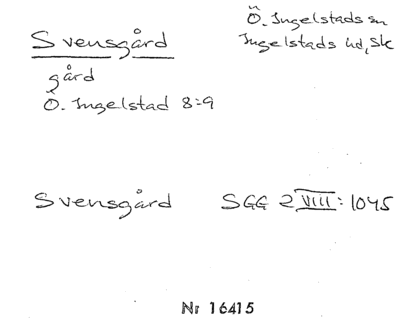 Svensgård
Ö. Ingelstads sn
Ingelstads hd, Sk
gård
Ö. Ingelstad 8:9
Svensgård SGG 2 VIII: 1045
Nr 16415